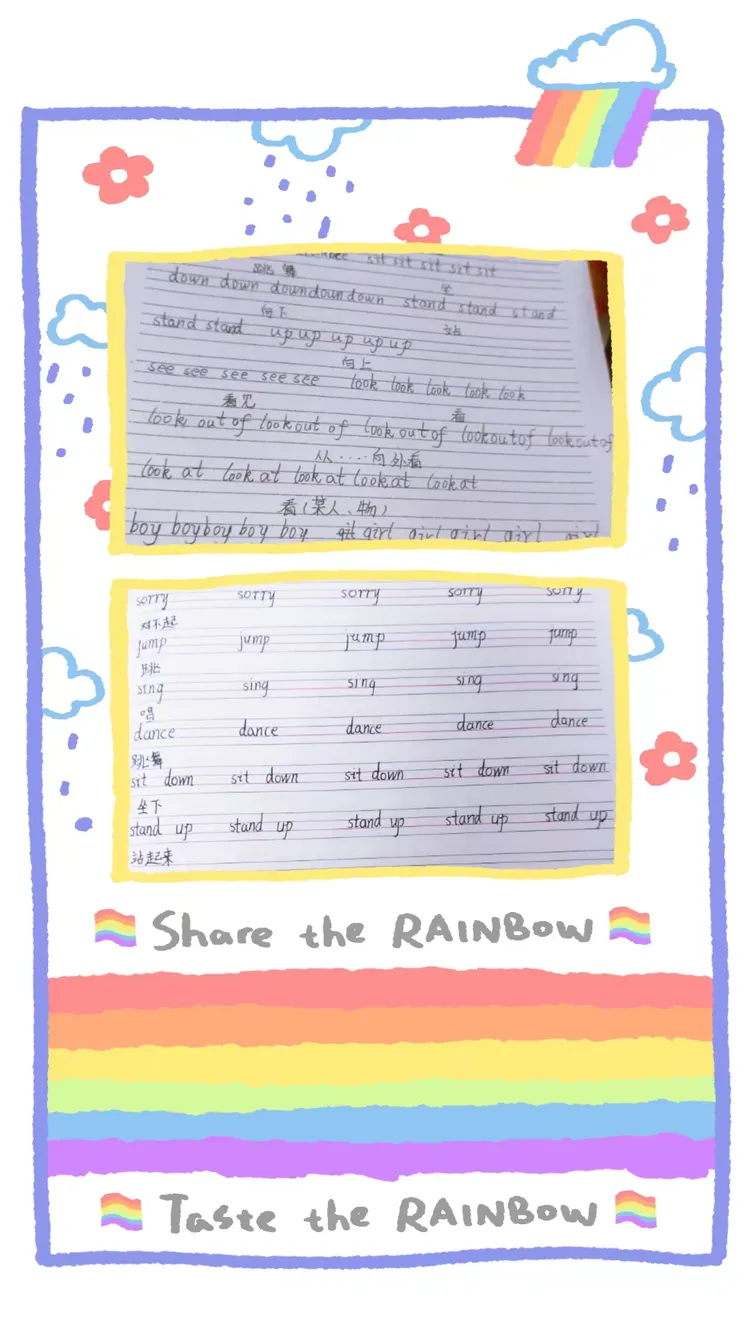 sit sit sit sit sit
跳舞 坐
down down down down down stand stand stand
向下 站
stand stand up up up up up
向上
see see see see see look look look look look
看见 看
look out of look out of look out of look out of look out of
从....向外看
look at look at look at look at look at
看(某人、物)
boy boy boy boy boy girl girl girl girl girl
sorry sorry sorry sorry sorry
对不起
jump jump jump jump jump
跳
sing sing sing sing sing
唱
dance dance dance dance dance
跳舞
sit down sit down sit down sit down sit down
坐下
stand up stand up stand up stand up stand up
站起来
Share the RAINBOW
Taste the RAINBOW